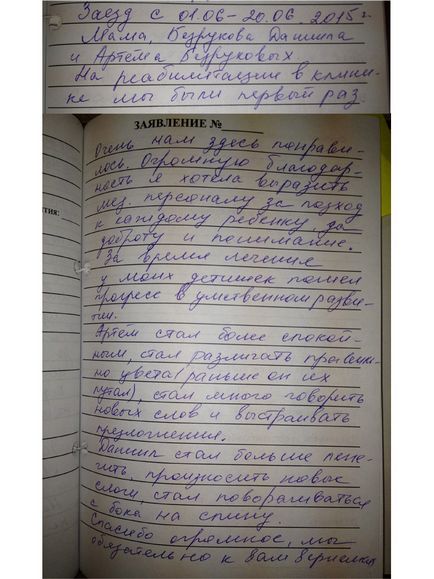 Заезд с 01.06-20.06.2015г.
Мама, Безрукова Даниила
и Артёма Безруковых
На реабилитации в клини-
ке мы были первый раз.
ЗАЯВЛЕНИЕ №
Очень нам здесь понрави-
лось. Огромную благодар-
ность я хотела выразить
мед. персоналу за подход
к каждому ребенку за
доброту и понимание.
За время лечения
у моих детишек пошел
прогресс в умственном разви-
тии.
Артём стал более спокой-
ным, стал различать правиль-
но цвета (раньше он их
путал), стал много говорить
новых слов и выстраивать
предложения.
Даниил стал больше
произносить новые
слоги, стал поворачиваться
с бока на спину.
Спасибо огромное, мы
обязательно к вам вернемся